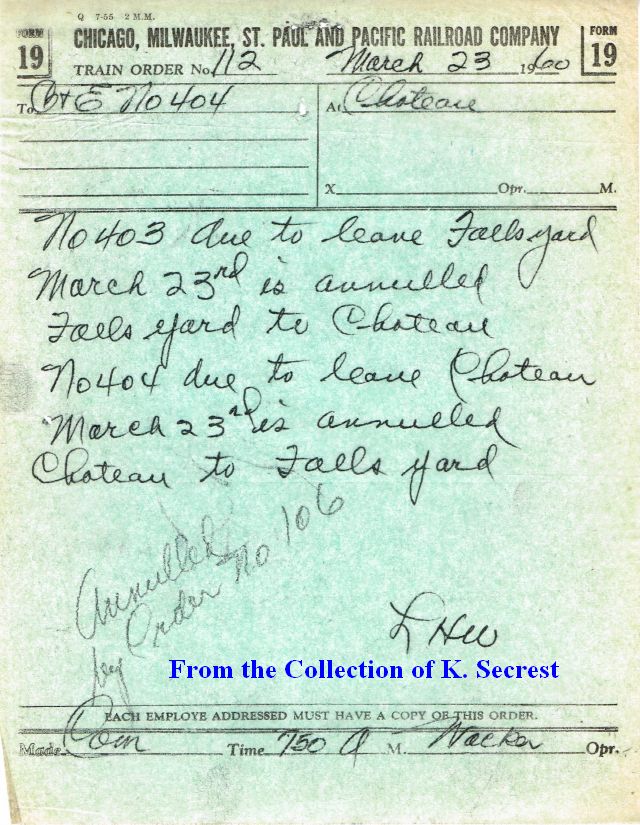 Q 7-55 2 M.M.
FORM 19
CHICAGO, MILWAUKEE, ST. PAUL AND PACIFIC RAILROAD COMPANY
FORM 19
TRAIN ORDER No. 112 March 23 1960
To C+E No 404
At Choteau
X Opr. M.
No 403 due to leave Falls yard
March 23rd is annulled
Falls yard to Choteau
No 404 due to leave Choteau
March 23rd is annulled
Choteau to Falls yard
Annulled
by Order No 106
LHW
From the Collection of K. Secrest
EACH EMPLOYE ADDRESSED MUST HAVE A COPY OF THIS ORDER.
Made Com Time 750 A M. Wacker Opr.